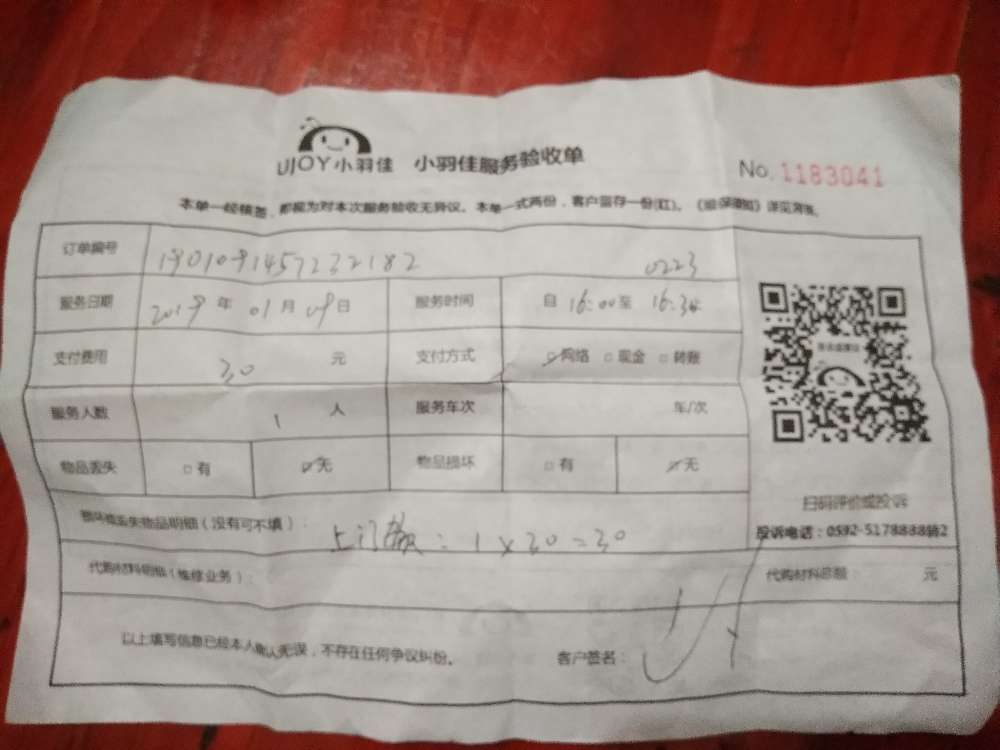 UJOY小羽佳 小羽佳服务验收单
No. 1183041
本单一经核签，都视为对本次服务验收无异议。本单一式两份，客户留存一份(红)。
订单编号 1901091457232182 0223
服务日期 2019年01月09日 服务时间 自16:00至16:30
支付费用 30 元 支付方式 网络 现金 转账
服务人数 1 人 服务车次 车/次
物品丢失 有 无 物品损坏 有 无
扫码评价或投诉
物品丢失物品明细（没有可不填）： 上门费：1×30=30
投诉电话：0592-5178888转2
代购材料明细（维修业务）： 代购材料总额 元
以上填写信息已经本人确认无误，不存在任何争议纠纷。 客户签名：